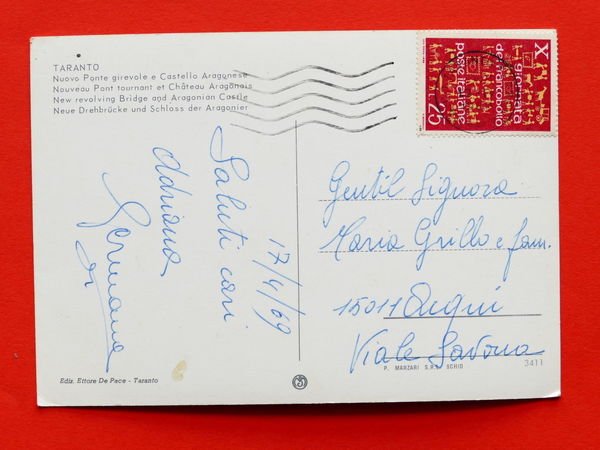 TARANTO
Nuovo Ponte girevole e Castello Aragonese
Nouveau Pont tournant et Château Aragonais
New revolving Bridge and Aragonian Castle
Neue Drehbrücke und Schloss der Aragonier
X giornata
del francobollo
poste italiane
25
17/4/69
Saluti cari
Adriana
Germana
Gentil Signora
Maria Grillo e fam.
15011 Acqui
Viale Savona
Ediz. Ettore De Pace - Taranto
P. MARZARI S.R.L. SCHIO
3411